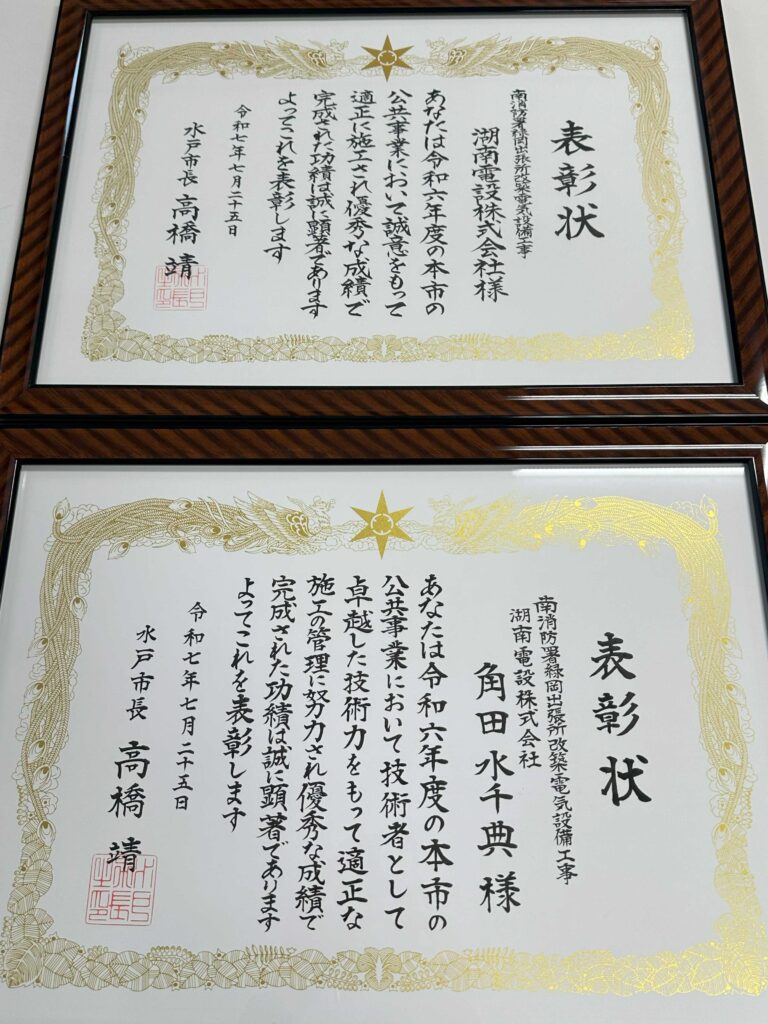 表彰状
南消防署緑岡出張所改築電気設備工事
湖南電設株式会社様
あなたは令和六年度の本市の
公共事業において誠意をもって
適正に施工され優秀な成績で
完成された功績は誠に顕著であります
よってこれを表彰します
令和七年七月二十五日
水戸市長 高橋 靖
表彰状
南消防署緑岡出張所改築電気設備工事
湖南電設株式会社
角田水千典様
あなたは令和六年度の本市の
公共事業において技術者として
卓越した技術力をもって適正な
施工の管理に努力され優秀な成績で
完成された功績は誠に顕著であります
よってこれを表彰します
令和七年七月二十五日
水戸市長 高橋 靖